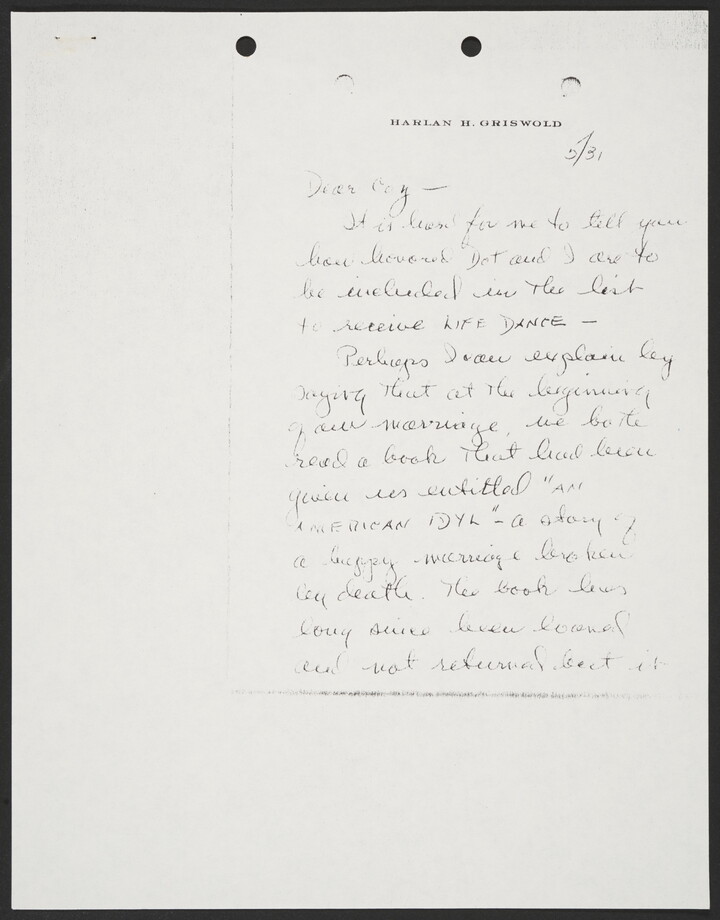 HARLAN H. GRISWOLD
5/31
Dear Coy —
It is hard for me to tell you
how honored Dot and I are to
be included in the list
to receive LIFE DANCE —
Perhaps I can explain by
saying that at the beginning
of our marriage, we both
read a book that had been
given us entitled "AN
AMERICAN IDYL" - a story of
a happy marriage broken
by death. The book has
long since been loaned
and not returned but it